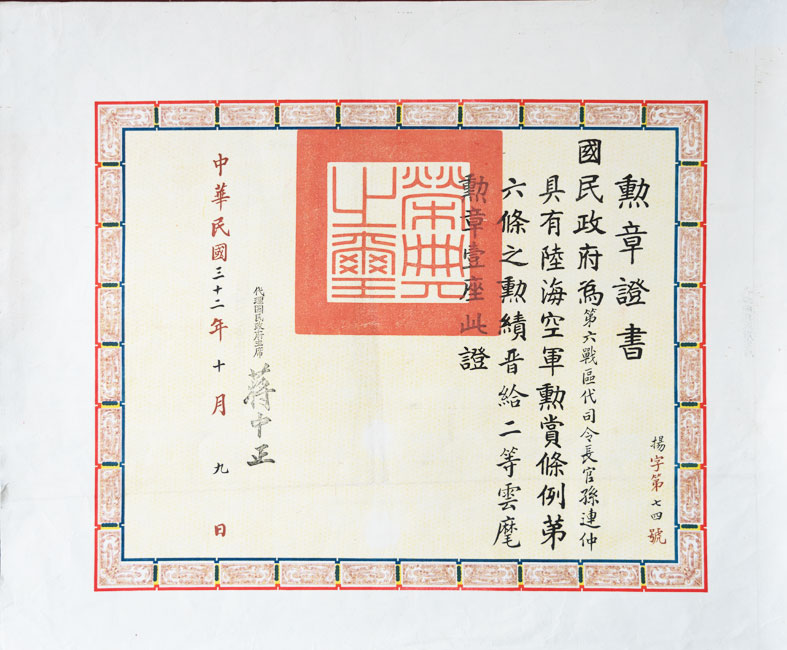 揚字第七四號
勳章證書
國民政府為第六戰區代司令長官孫連仲
具有陸海空軍勳賞條例第
六條之勳績晋給二等雲麾
勳章壹座此證
榮典之璽
代理國民政府主席
蔣中正
中華民國三十二年十月九日